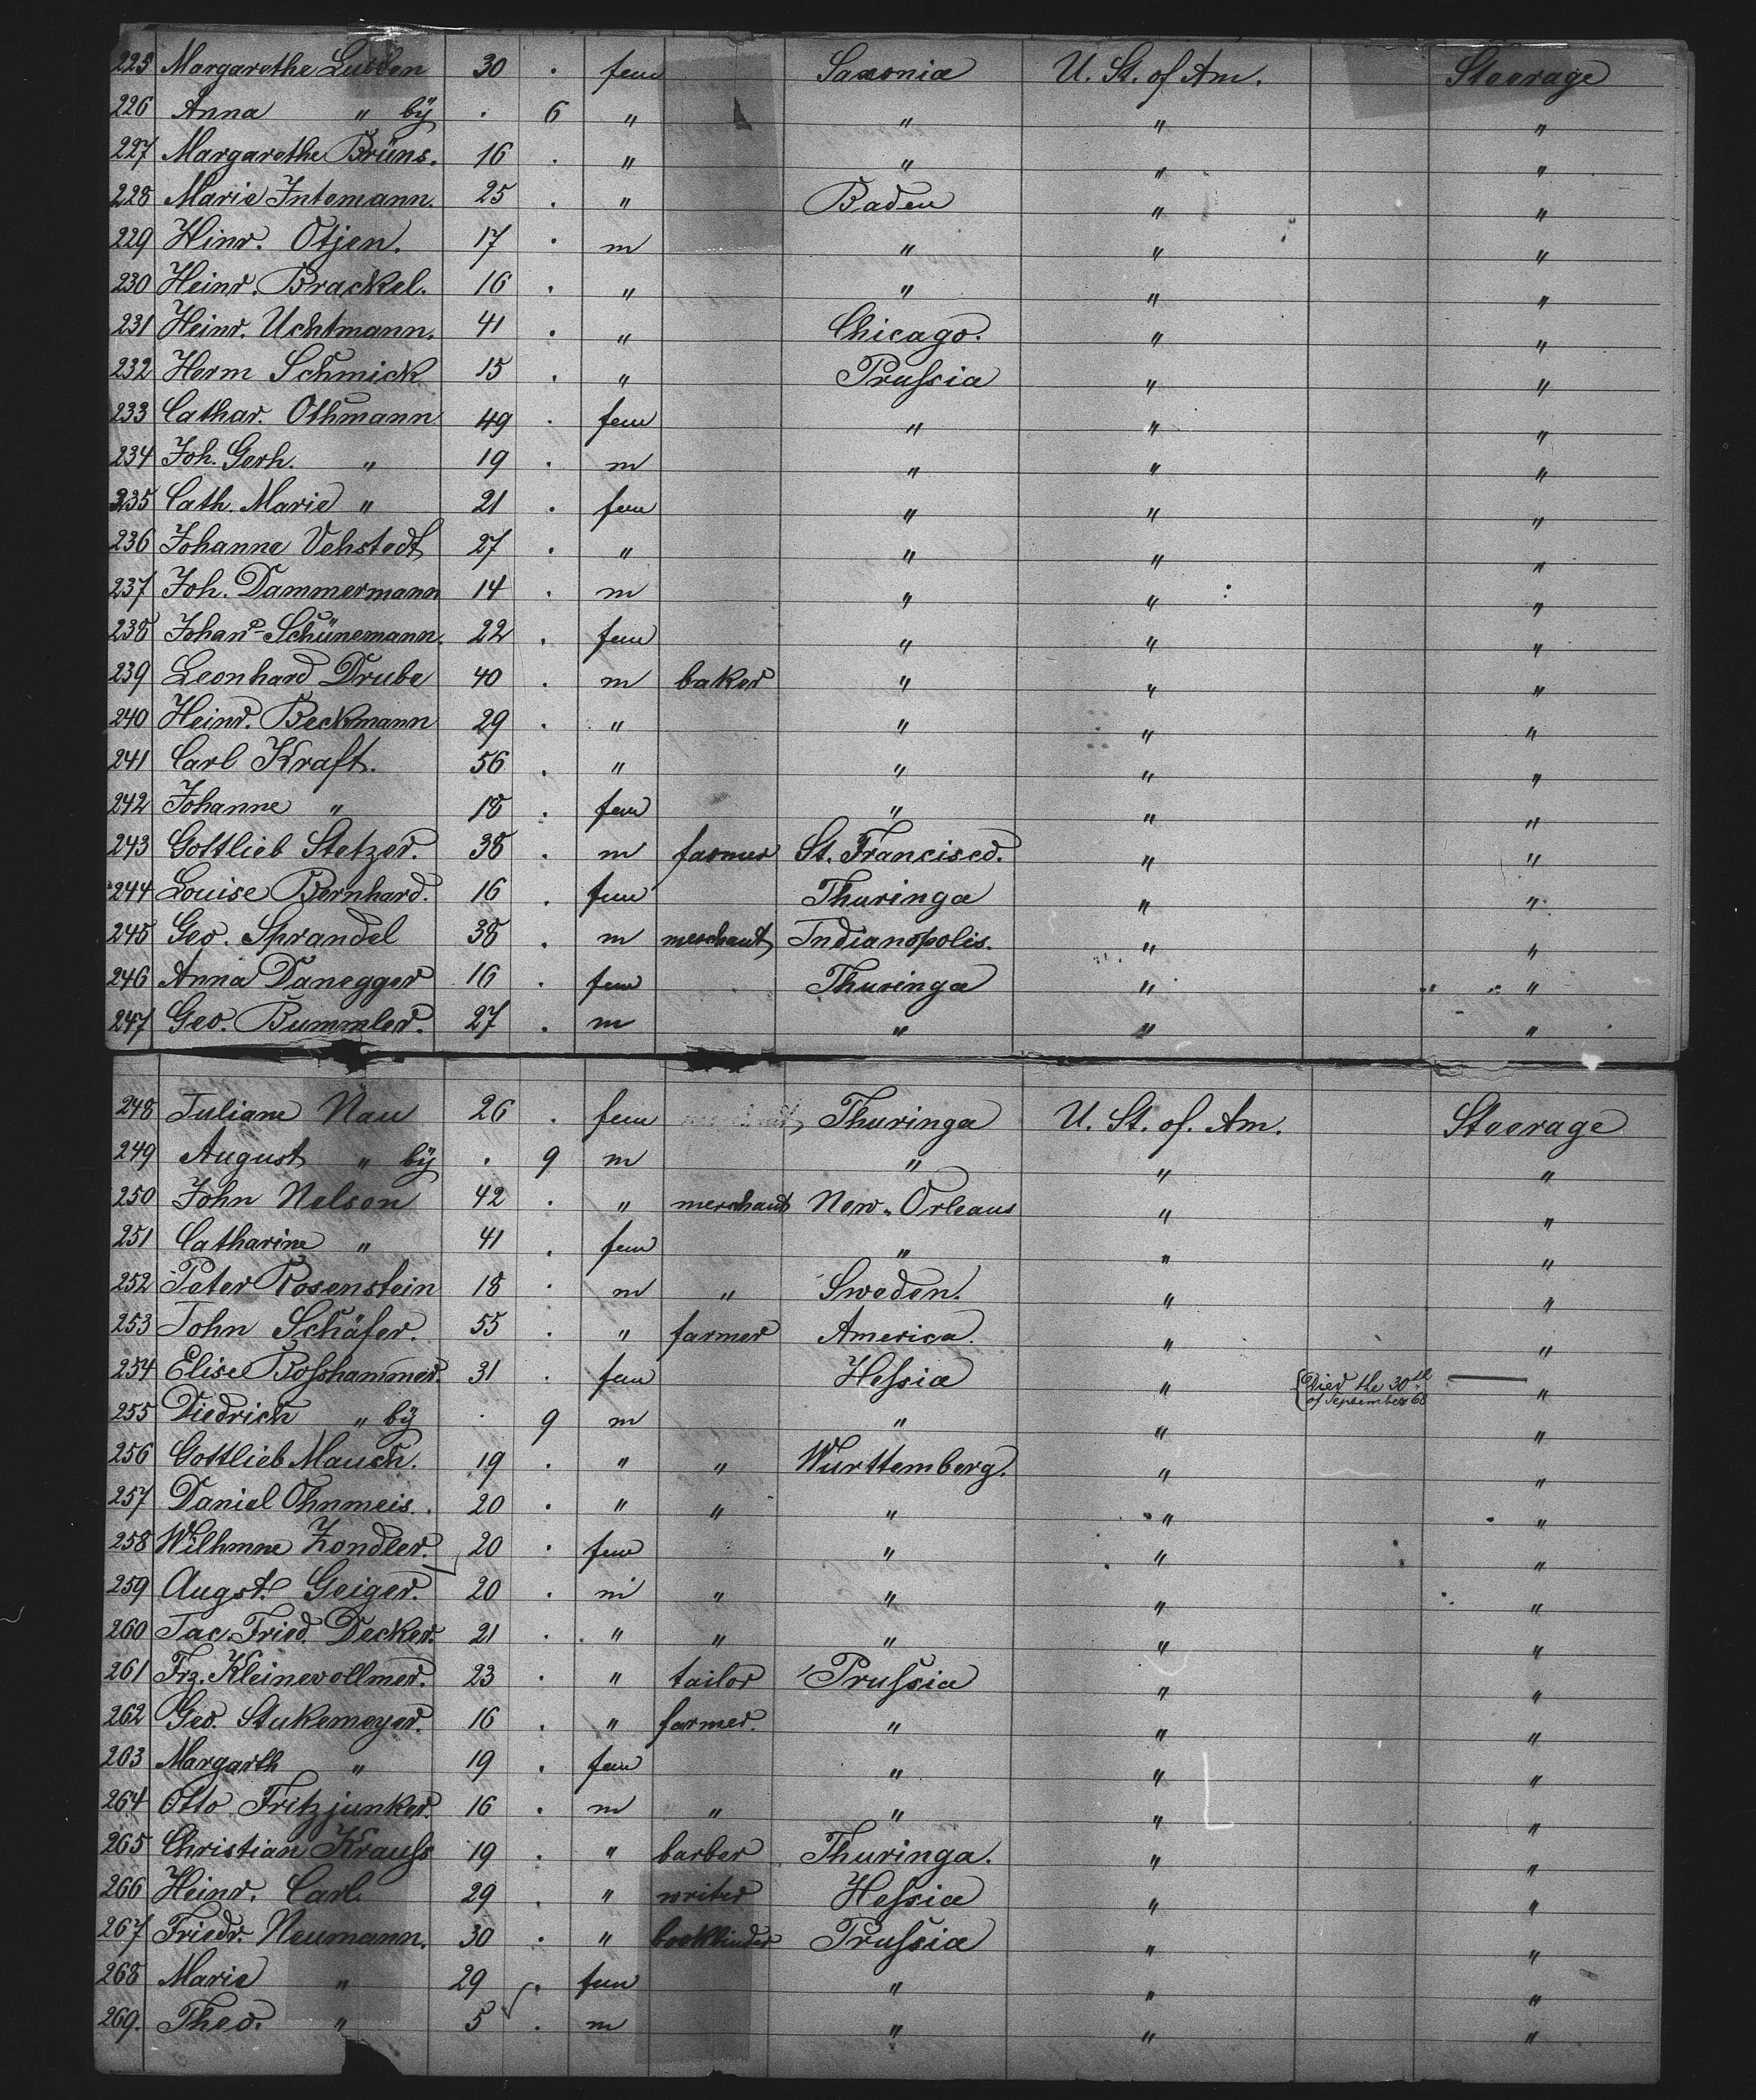 225 Margarethe Lübben 30 . fem Saxonia U. St. of Am. Steerage
226 Anna " by . 6 " " " "
227 Margarethe Brüns. 16 . " " " "
228 Marie Intemann. 25 . " Baden " "
229 Hinr. Otjen. 17 . m " " "
230 Heinr. Brackel. 16 . " " " "
231 Heinr. Uchtmann. 41 . " Chicago. " "
232 Herm Schmick 15 . " Prussia " "
233 Cathar. Othmann 49 . fem " " "
234 Joh. Gerh. " 19 . m " " "
235 Cath. Marie " 21 . fem " " "
236 Johanne Vehstedt 27 . " " " "
237 Joh. Dammermann 14 . m " " "
238 Johane Schünemann. 22 . fem " " "
239 Leonhard Drube 40 . m baker " " "
240 Heinr. Beckmann 29 . " " " "
241 Carl Kraft. 56 . " " " "
242 Johanne " 18 . fem " " "
243 Gottlieb Stetzer. 38 . m farmer St. Francisco. " "
244 Louise Bernhard. 16 . fem Thuringa " "
245 Geo. Sprandel 38 . m merchant Indianopolis. " "
246 Anna Danegger 16 . fem Thuringa " "
247 Geo. Bummler. 27 . m " " "
248 Juliane Nau 26 . fem Thuringa U. St. of. Am. Steerage
249 August " by . 9 m " " "
250 John Nelson 42 . " merchant New-Orleans " "
251 Catharine " 41 . fem " " "
252 Peter Rosenstein 18 . m " Sweden. " "
253 John Schäfer. 55 . " farmer America. " "
254 Elise Rosshammer. 31 . fem Hessia " Died the 30th of September 68 "
255 Diedrich " by . 9 m " " "
256 Gottlieb Mauch. 19 . " " Wurttemberg. " "
257 Daniel Ohnmeis. 20 . " " " " "
258 Wilhmne Zondler. 20 . fem " " "
259 Augst. Geiger. 20 . m " " " "
260 Jac. Fried. Decker. 21 . " " " " "
261 Frz. Kleinevollmer. 23 . " tailor Prussia " "
262 Geo. Stukemeyer. 16 . " farmer. " " "
263 Margarth " 19 . fem " " "
264 Otto Fritzjunker. 16 . m " " " "
265 Christian Krauss 19 . " barber Thuringa. " "
266 Heinr. Carl. 29 . " writer Hessia " "
267 Friedr. Neumann. 30 . " bookbinder Prussia " "
268 Marie " 29 . fem " " "
269. Theo. " 5 . m " " "